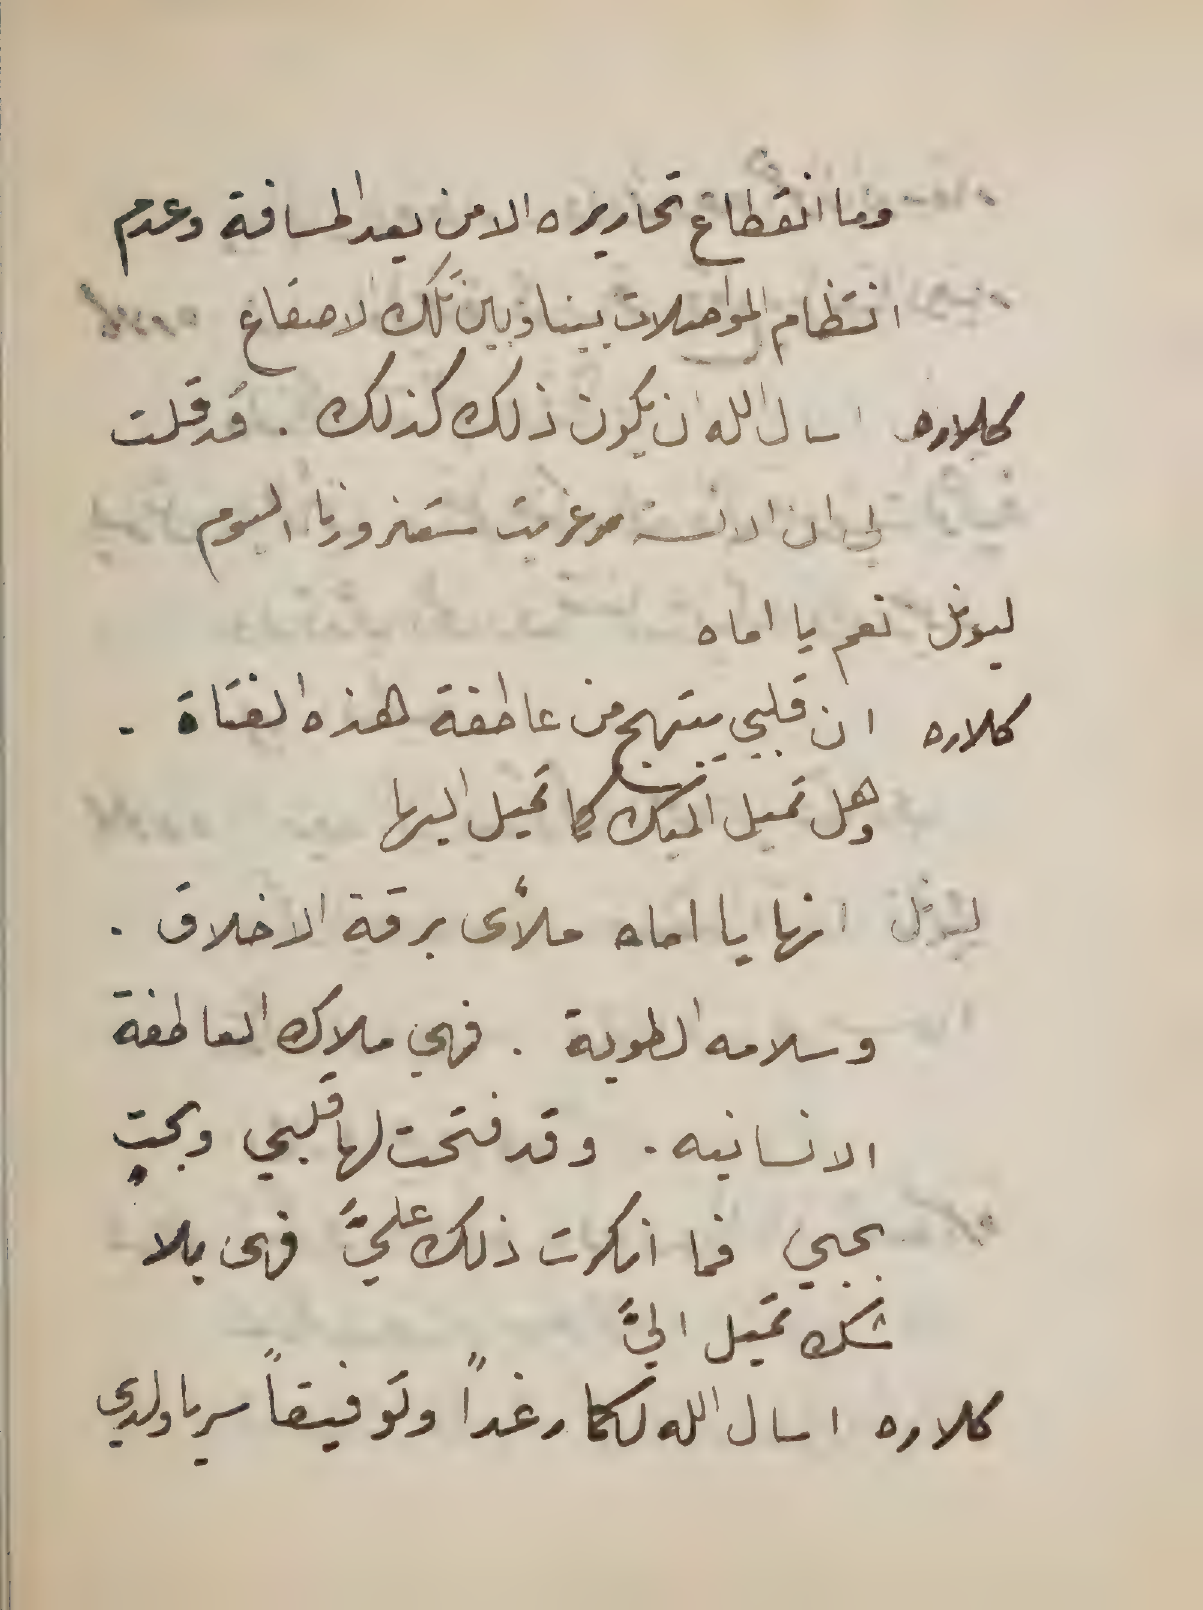 وما انقطاع تحاريره الا من بعد المسافة وعدم
انتظام المواصلات بيننا وبين تلك الاصقاع
كلاره اسال الله ان يكون ذلك كذلك . قد قلت
لي ان الانسة مرغريت ستزورنا اليوم
ليونل نعم يا اماه
كلاره ان قلبي يبتهج من عاطفة هذه الفتاة .
وهل تميل اليك كما تميل اليها
ليونل انها يا اماه ملأى برقة الاخلاق .
وسلامه الطوية . فهي ملاك العاطفة
الانسانيه . وقد فتحت لها قلبي وبحت
بحبي فما انكرت ذلك عليَّ فهى بلا
شك تميل اليَّ
كلاره اسال الله لكما رغداً وتوفيقاً سر يا ولدي